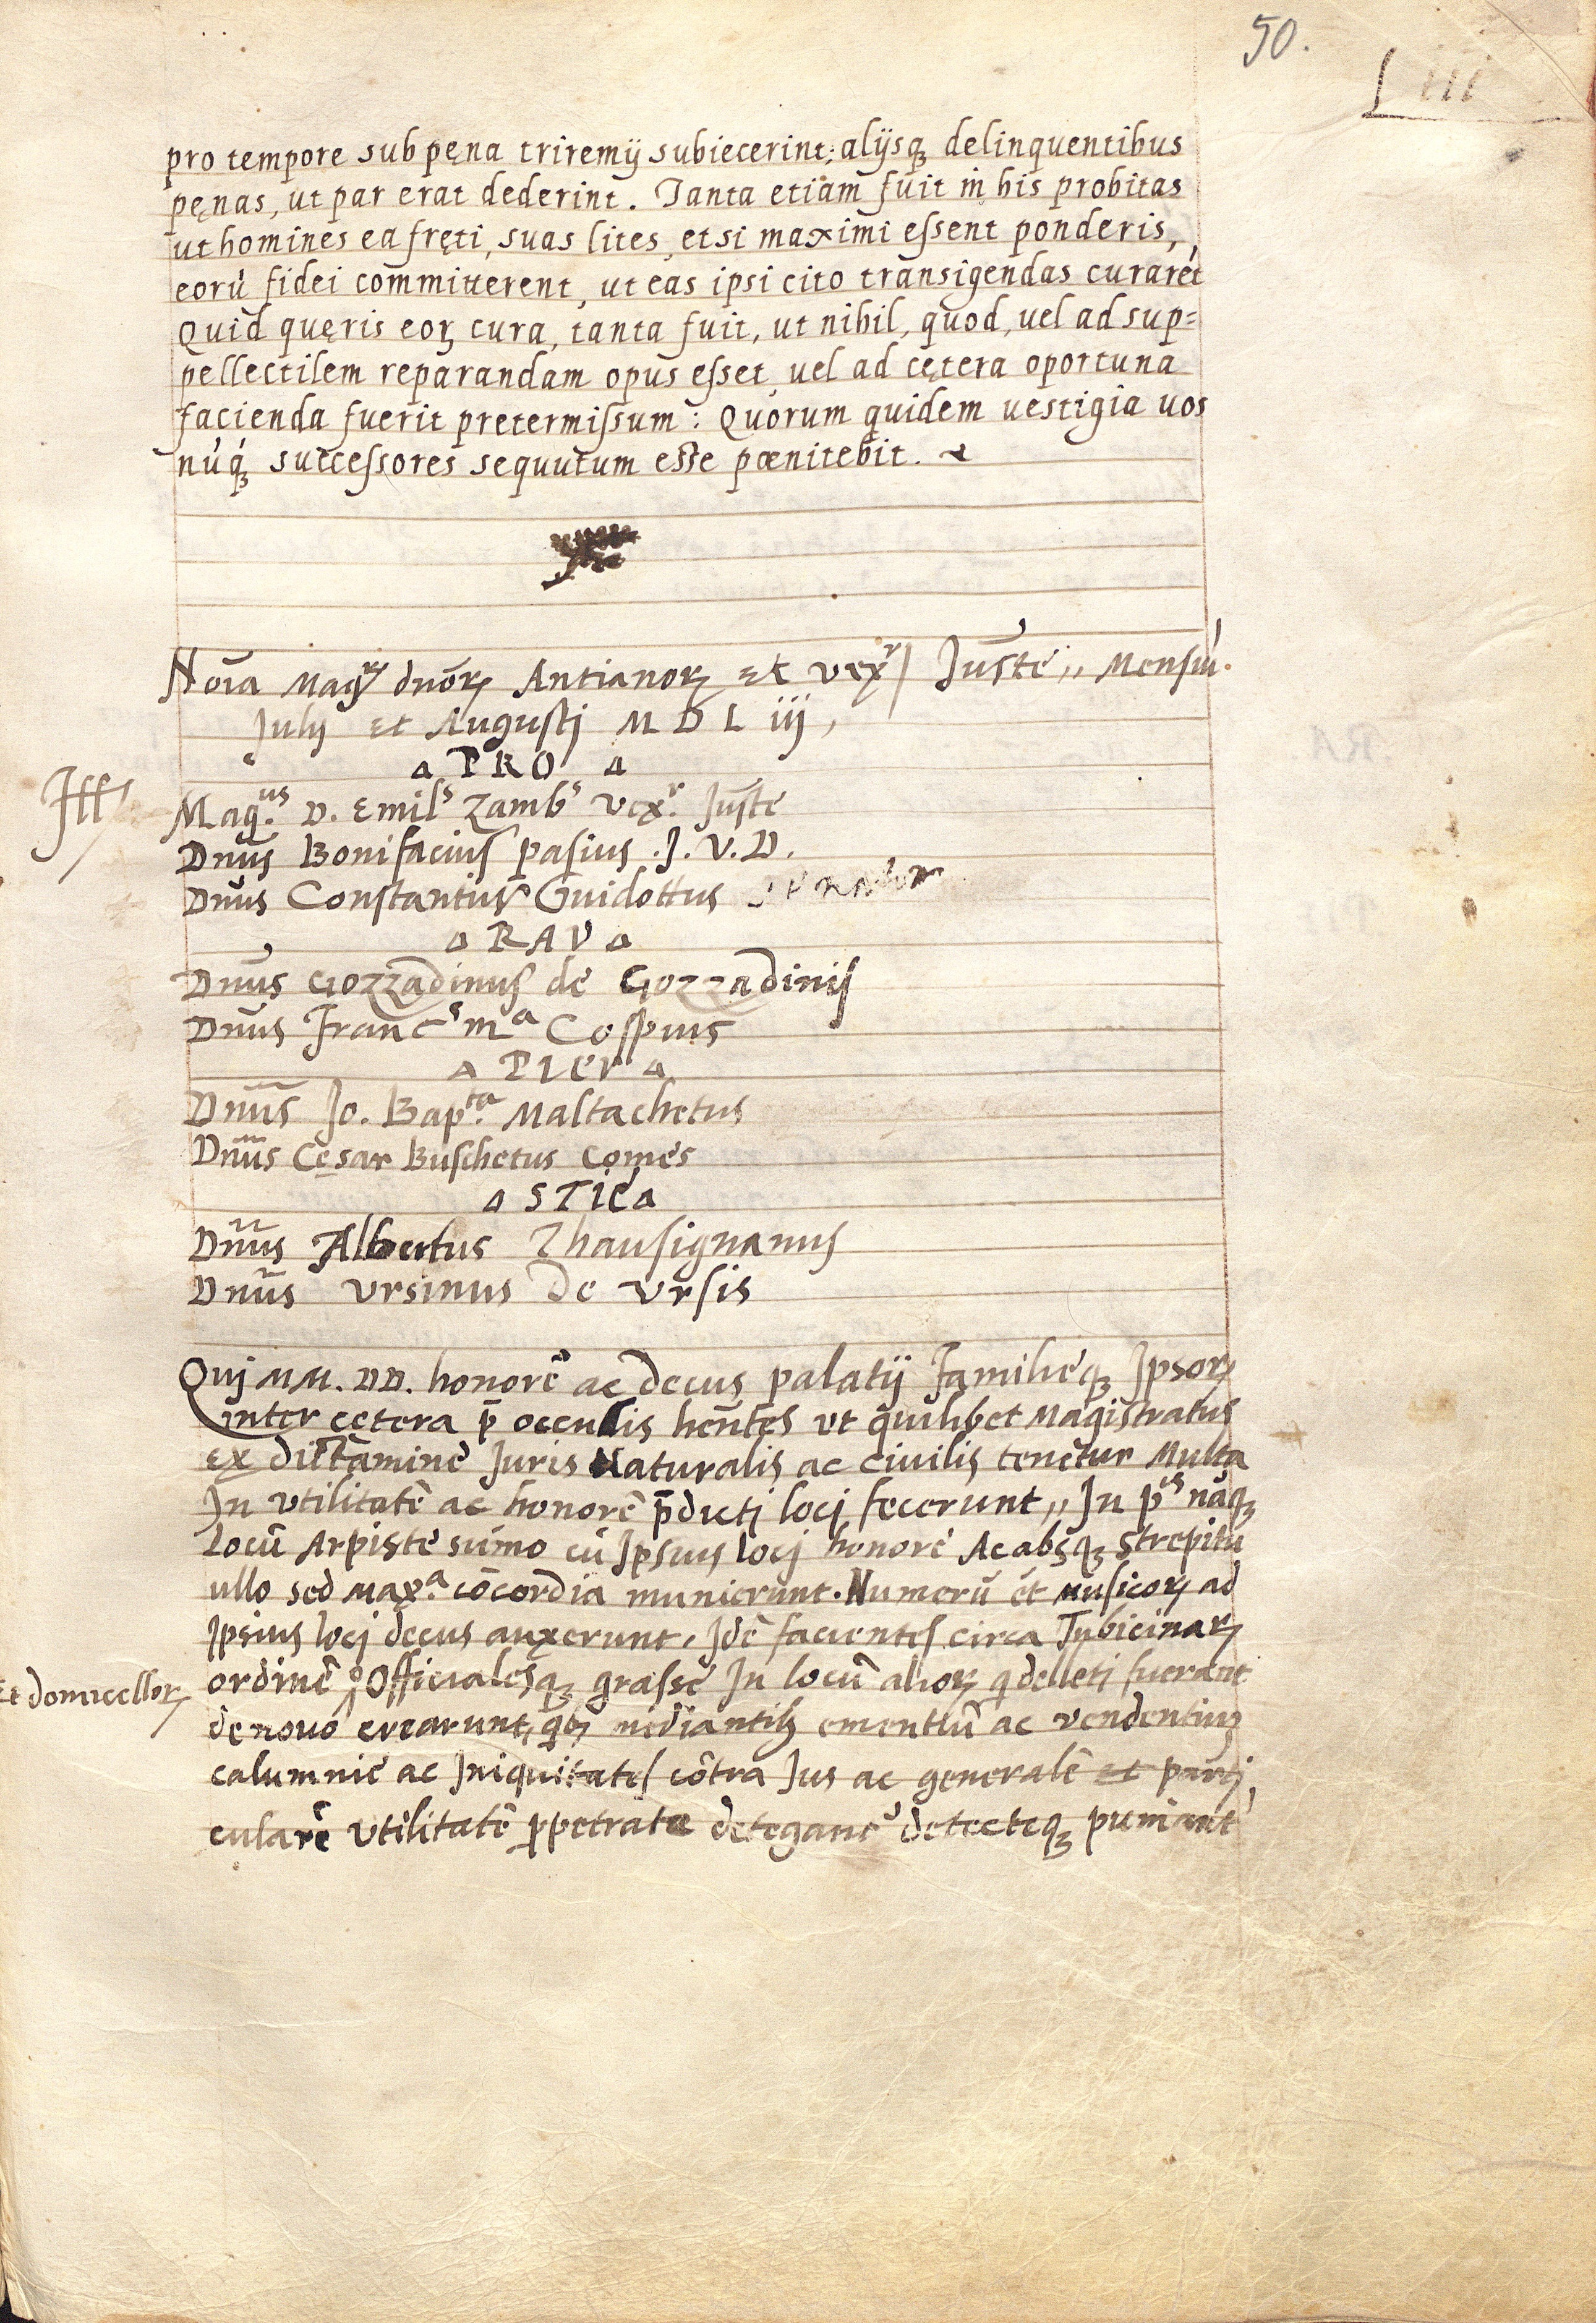 50.
Liii
pro tempore sub pęna triremij subiecerint; alijsq₃ delinquentibus
pęnas, ut par erat dederint. Tanta etiam fuit in his probitas
ut homines ea fręti, suas lites, etsi maximi essent ponderis,
eorū fidei committerent, ut eas ipsi cito transigendas curarēt
Quid quęris eoꝝ cura, tanta fuit, ut nihil, quod, uel ad sup=
pellectilem reparandam opus esset, uel ad cętera oportuna
facienda fuerit pretermissum: Quorum quidem uestigia uos
nūq̄₃ successores sequutum esse pœnitebit.
Nōīa Mag.ᶜᵒʳ dnōꝝ Antianoꝝ Et vexʳ / Justē,, Mensiū.
Julij et Augustj M D L iij,
PRO
Iff
Mag.ᵘˢ D. Emilˢ Zambˢ vexʳ. Juste
Dnūs Bonifacius pasius .J. V. D.
Dnūs Constantius Guidottus
RAV
Dnūs Gozzadinus de Gozzadinis
Dnūs Francˢ mᵃ Cospius
PIER
Dnūs Jo. Bapᵗᵃ. Maltachetus
Dnūs Cęsar Buschetus comes
STIE
Dnūs Albertus
Dnūs Vrsinus De Vrsis
Quj MM. DD. honorē ac decus palatij Familieq₃ Ipsoꝝ
inter cetera p̄ occulis hēntes vt quilibet Magistratus
Ex dictamine Juris Naturalis ac Ciuilis tenetur Multa
In vtilitatē ac honorē p̄dictj locj fecerunt,, In pⁱˢ nāq₃
Locū Arpiste sūmo cū Ipsius locj honore Ac absq₃ Strepitu
ullo sed Maxᵃ. cōcordia munierunt. Numerū et musicoꝝ ad
Ipsius locj decus auxerunt. Idē facientes circa Tubicinaꝝ
Et domicelloꝝ
ordinē Officialesq₃ grasse In locū alioꝝ q̄ delleti fuerant
de nouo crearunt, qb₃ mediantib₃ ementiū ac vendentiū
calumnie ac Iniquitates cōtra Jus ac generalē et parti
cularē vtilitatē ꝑpetrate detegantᵘ detecteq₃ puniant